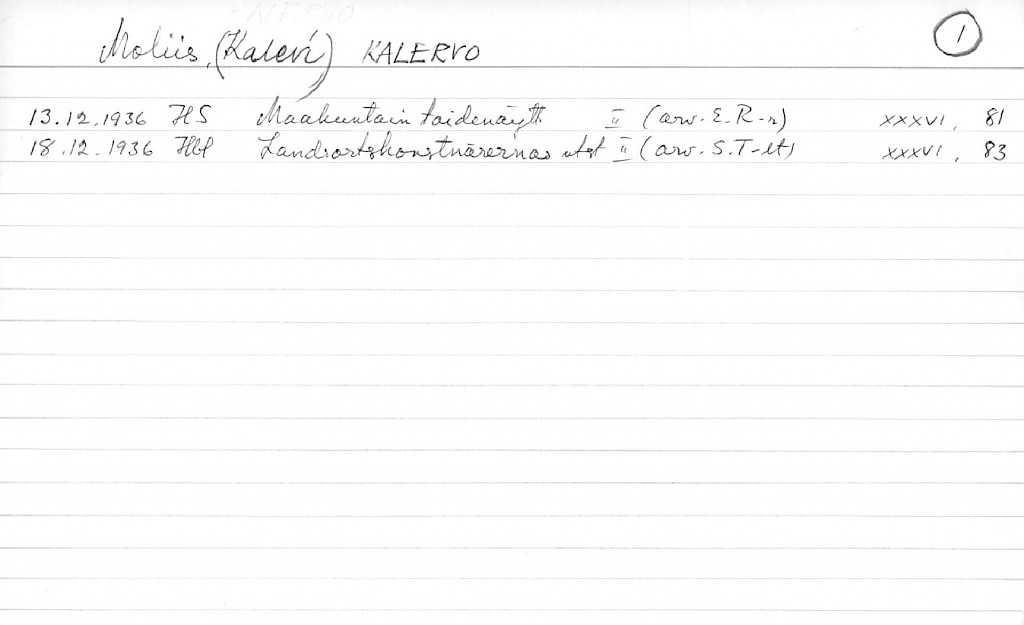 Moliis, (Kalevi) KALERVO 1
13.12.1936 HS Maakuntain taidenäytt. II (arv. E. R-r) XXXVI, 81
18.12.1936 Hbl Landsortskonstnärernas utst II (arv. S. T-lt) XXXVI, 83